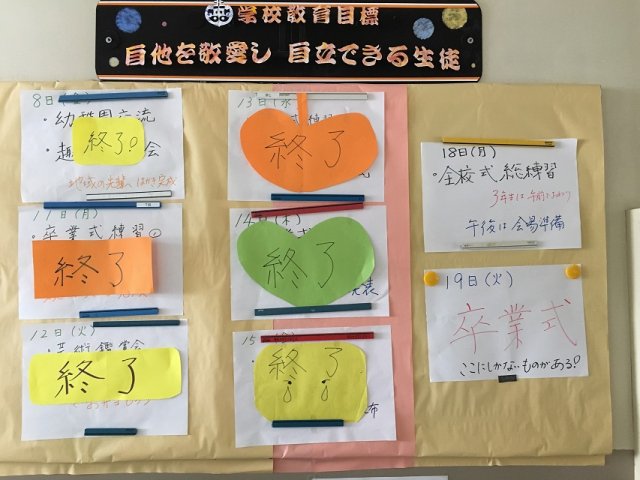 学校教育目標
自他を敬愛し 自立できる生徒
8日(金)
・幼稚園交流
終了。
会
地域の先輩へはがき完成
11日(月)
・卒業式練習①
終了
12日(火)
・芸術鑑賞会
終了
13日(水
式練習
終了
14日(木)
終了
表
15
終了
布
18日(月)
・全校式総練習
3年生は午前で
午後は会場準備
19日(火)
卒業式
ここにしかないものがある!